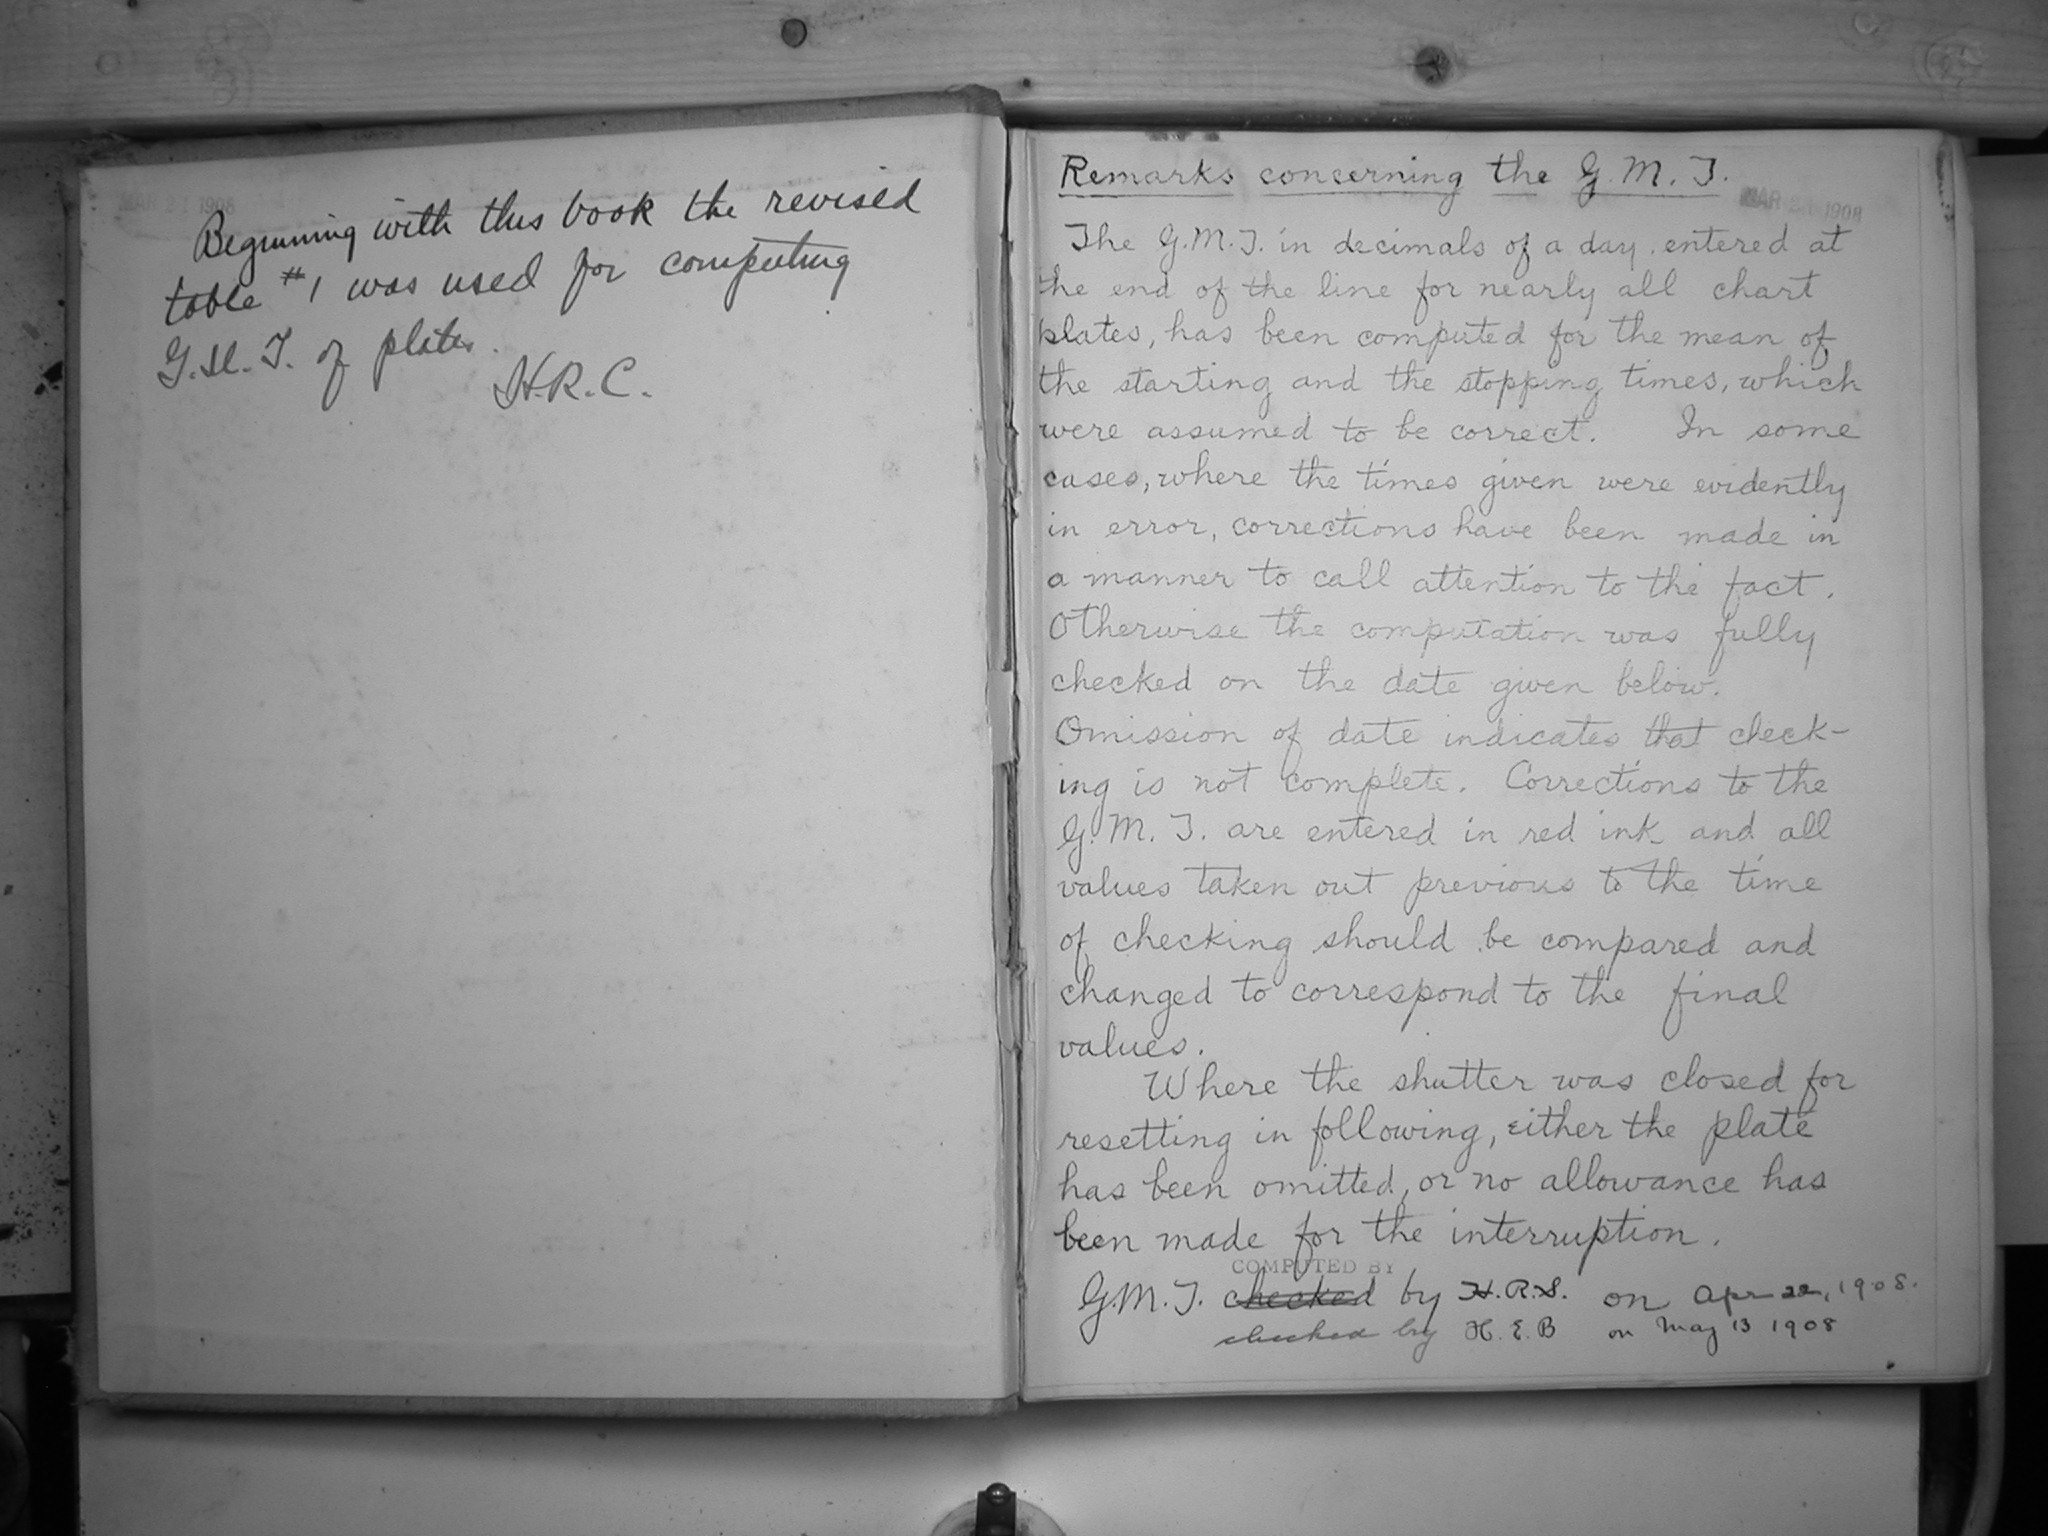 MAR 21 1908
Beginning with this book the revised
table #1 was used for computing
G.M.T. of plates.
H.R.C.
Remarks concerning the G.M.T.
MAR 21 1908
The G.M.T. in decimals of a day, entered at
the end of the line for nearly all chart
plates, has been computed for the mean of
the starting and the stopping times, which
were assumed to be correct. In some
cases, where the times given were evidently
in error, corrections have been made in
a manner to call attention to the fact.
Otherwise the computation was fully
checked on the date given below.
Omission of date indicates that check-
ing is not complete. Corrections to the
G.M.T. are entered in red ink and all
values taken out previous to the time
of checking should be compared and
changed to correspond to the final
values.
Where the shutter was closed for
resetting in following, either the plate
has been omitted, or no allowance has
been made for the interruption.
COMPUTED BY
G.M.T. checked by H.R.S. on Apr 22, 1908.
checked by H.E.B on May 13 1908